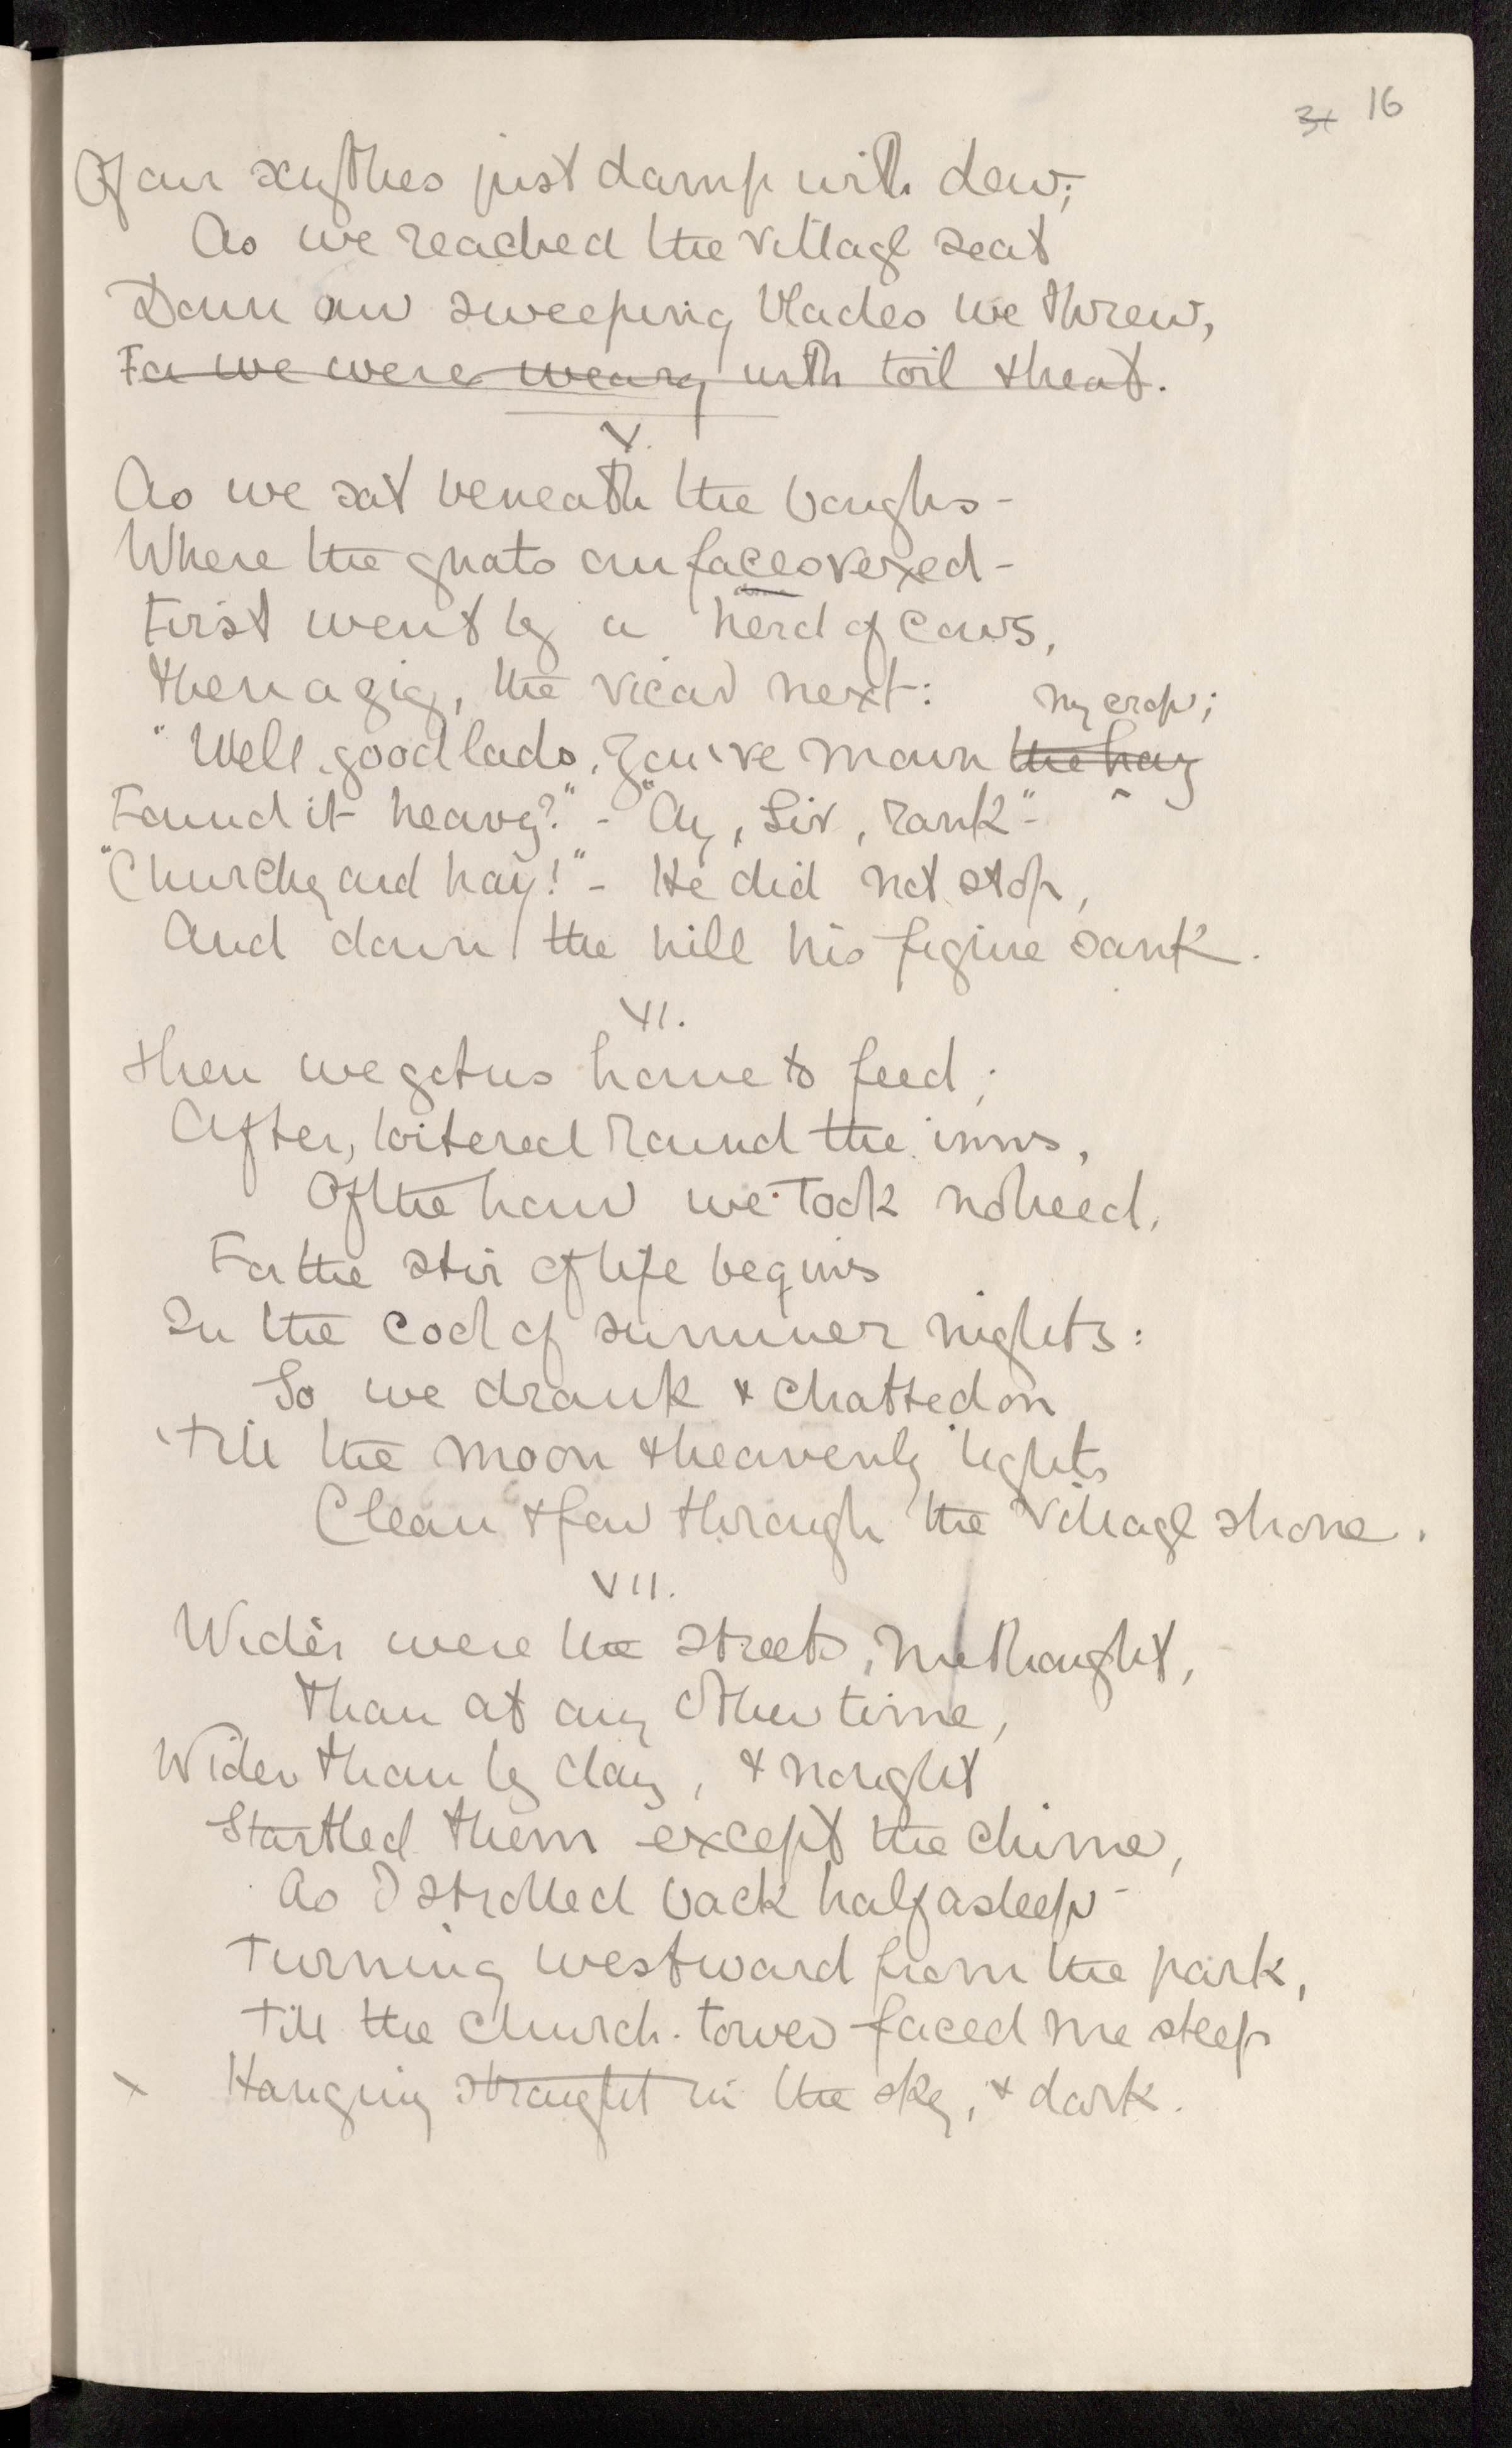 3x 16
Of our scythes just damp with dew;
As we reached the village seat
Down our sweeping blades we threw,
For we were weary with toil & heat.
V.
As we sat beneath the boughs -
Where the gnats our faces vexed -
First went by a herd of cows,
Then a gig, the vicar next:
my crop;
"Well, good lads, you've mown the hay
Found it heavy?" - "Ay, Sir, rank" -
"Churchyard hay!" - He did not stop,
And down the hill his figure sank.
VI.
Then we got us home to feed;
After, loitered round the inns,
Of the hour we took no heed,
For the stir of life begins
In the cool of summer nights:
So we drank & chatted on
'Till the moon & heavenly lights
Clear & few through the village shone.
VII.
Wider were the streets, methought,
Than at any other time,
Wider than by day, & nought
Startled them except the chime,
As I strolled back half asleep -
Turning westward from the park,
Till the church-tower faced me steep
x Hanging straight in the sky, & dark.